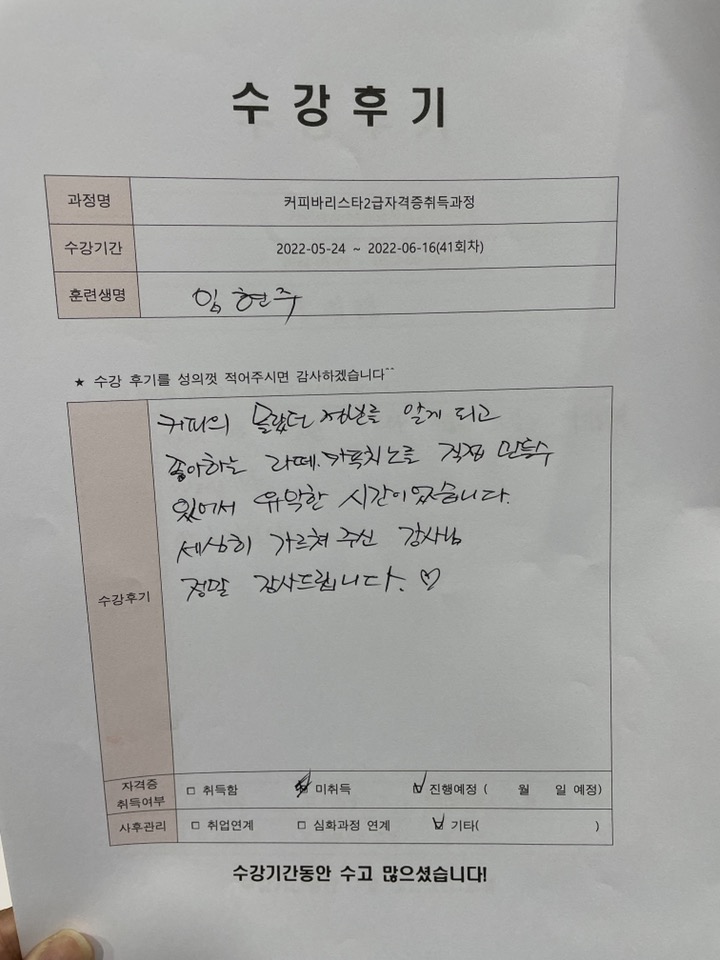 수강후기
과정명 커피바리스타2급자격증취득과정
수강기간 2022-05-24 ~ 2022-06-16(41회차)
훈련생명 임현주
★ 수강 후기를 성의껏 적어주시면 감사하겠습니다^^
수강후기
커피의 몰랐던 정보를 알게 되고
좋아하는 라떼.카푹치노를 직접 만들수
있어서 유악한 시간이었습니다.
세상히 가르쳐 주신 강사님
정말 감사드립니다. ♡
자격증 취득여부 □ 취득함 □ 미취득 ☑ 진행예정 ( 월 일 예정)
사후관리 □ 취업연계 □ 심화과정 연계 ☑ 기타( )
수강기간동안 수고 많으셨습니다!